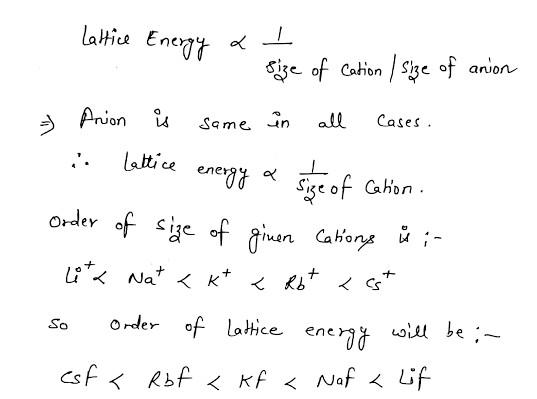 Lattice Energy ∝ 1 / Size of Cation / Size of anion
⇒ Anion is same in all cases.
∴ Lattice energy ∝ 1 / Size of Cation.
Order of size of given cations is :-
Li⁺ < Na⁺ < K⁺ < Rb⁺ < Cs⁺
So order of lattice energy will be :-
Csf < Rbf < Kf < Naf < Lif